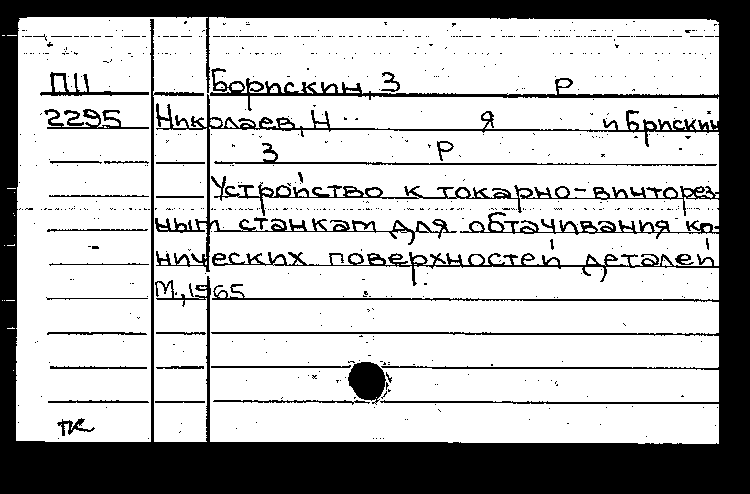 П11 Борискин, З Р
2295 Николаев, Н Я и Брискин
З Р
Устройство к токарно-винторез-
ным станкам для обтачивания ко-
нических поверхностей деталей
М., 1965
тк